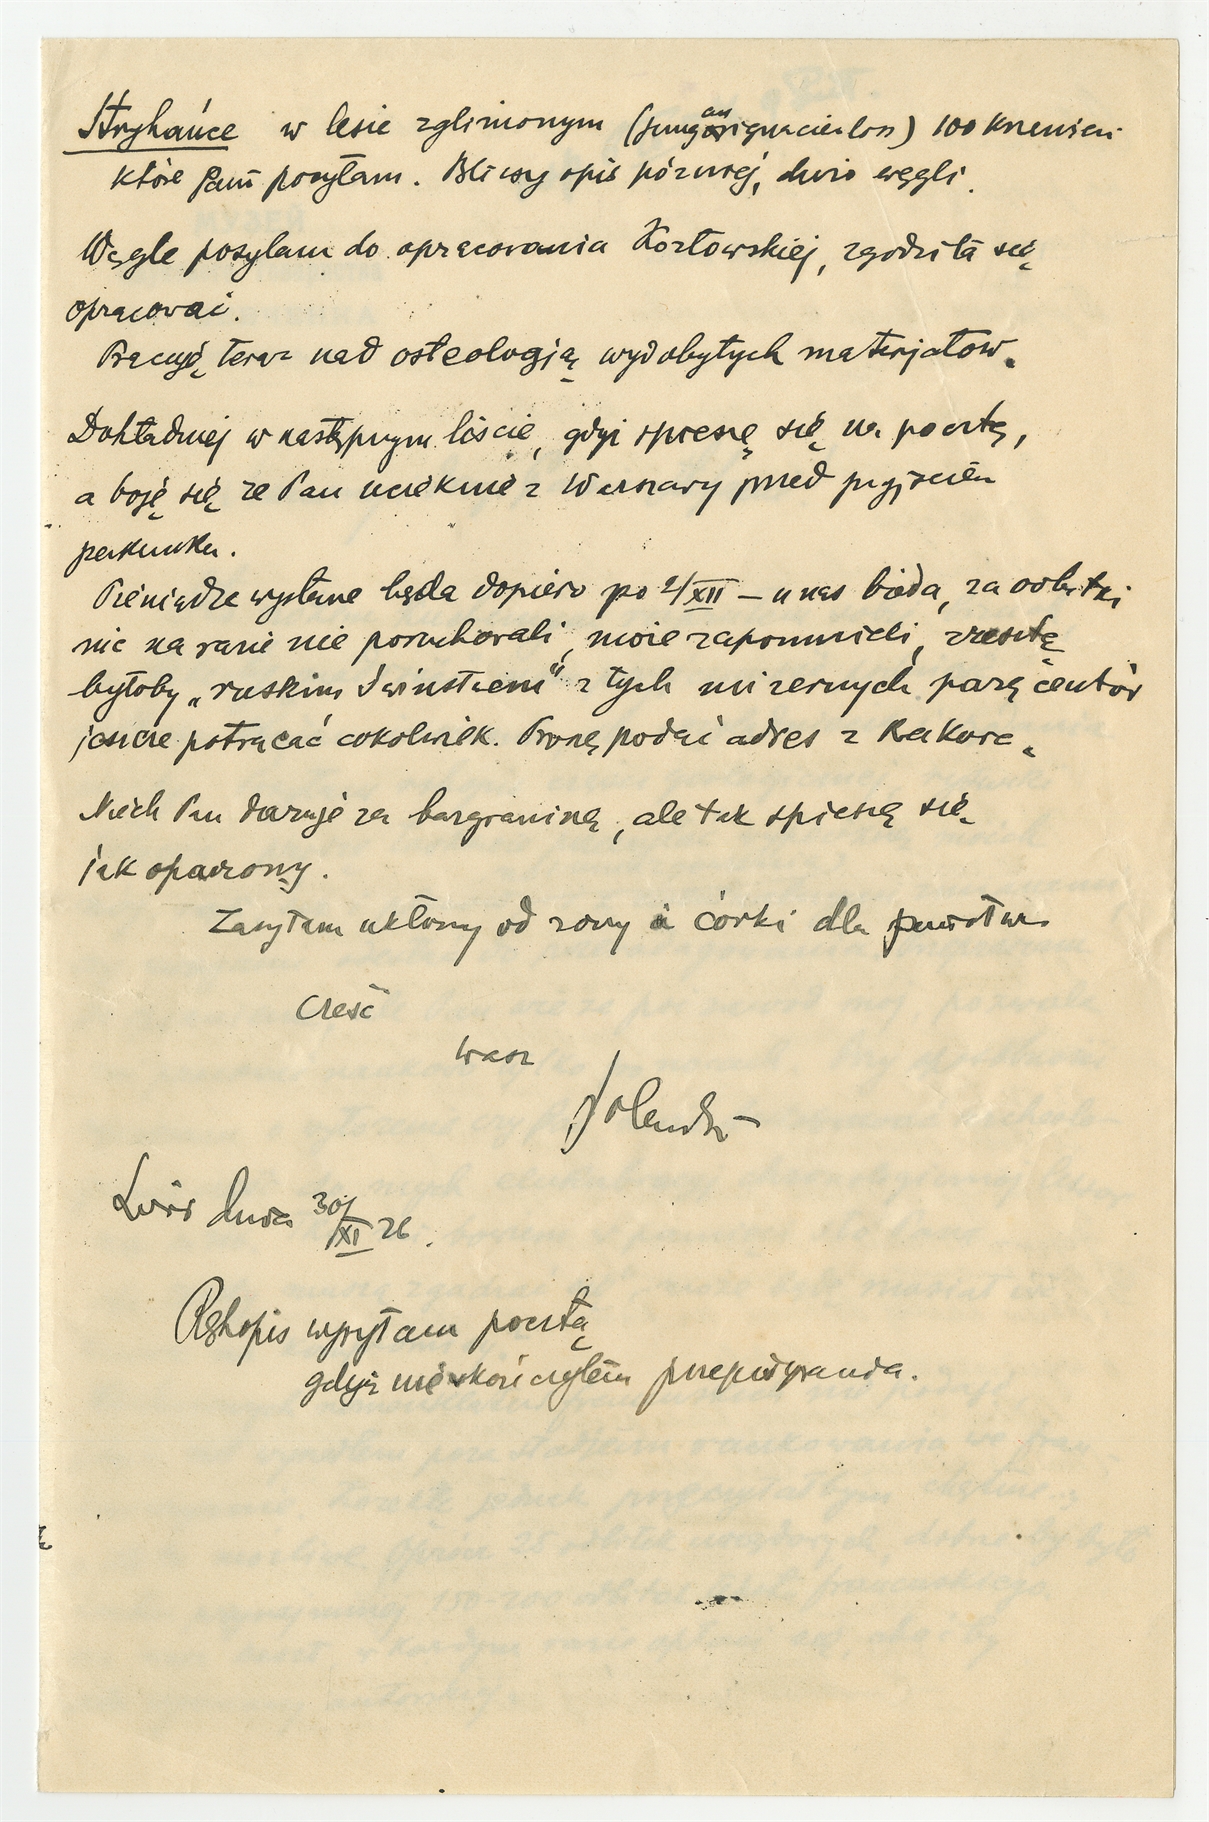 Stryhańce w lesie zglinionym 100 krzemieni
które Panu posyłam. Bliższy opis później, dużo węgli.
Węgle posyłam do opracowania Kozłowskiej, zgodziła się
opracować.
Pracuję teraz nad osteologją wydobytych materjałów.
Dokładniej w następnym liście, gdyż spieszę się na pocztę,
a boję się że Pan ucieknie z Warszawy przed przyjściem
pakunku.
Pieniądze wysłane będą dopiero po 2/XII – u nas bieda, za odbitki
nic na razie nie porachowali, może zapomnieli, zresztą
byłoby „ruskim świństwem" z tych mizernych parę centów
jeszcze potrącać cokolwiek. Proszę podać adres z Krakowa.
Niech Pan daruje za bazgraninę, ale tak spieszę się
jak oparzony.
Zasyłam ukłony od żony i córki dla państwa
Cześć
Wasz
Lwów dnia 30/XI 26.
Rękopis wysyłam pocztą
gdyż nie skończyłem przepisywania.